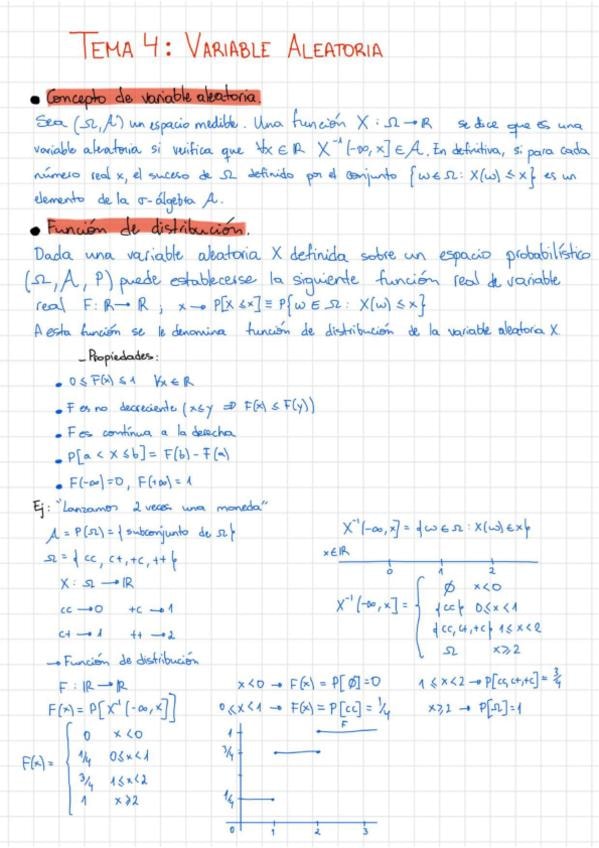 TEMA 4: VARIABLE ALEATORIA
• Concepto de variable aleatoria.
Sea (Ω, A) un espacio medible. Una función X: Ω → R se dice que es una
variable aleatoria si verifica que ∀x ∈ R X⁻¹(-∞, x] ∈ A. En definitiva, si para cada
número real x, el suceso de Ω definido por el conjunto {ω ∈ Ω: X(ω) ≤ x} es un
elemento de la σ-álgebra A.
• Función de distribución.
Dada una variable aleatoria X definida sobre un espacio probabilístico
(Ω, A, P) puede establecerse la siguiente función real de variable
real F: R → R ; x → P[X ≤ x] ≡ P{ω ∈ Ω: X(ω) ≤ x}
A esta función se le denomina función de distribución de la variable aleatoria X
- Propiedades:
• 0 ≤ F(x) ≤ 1 ∀x ∈ R
• F es no decreciente (x ≤ y ⇒ F(x) ≤ F(y))
• F es contínua a la derecha
• P[a < X ≤ b] = F(b) - F(a)
• F(-∞) = 0, F(+∞) = 1
Ej: "Lanzamos 2 veces una moneda"
A = P(Ω) = {subconjunto de Ω}
Ω = {cc, c+, +c, ++}
X: Ω → R
cc → 0 +c → 1
c+ → 1 ++ → 2
X⁻¹(-∞, x] = {ω ∈ Ω: X(ω) ∈ x}
x ∈ R
0 1 2
X⁻¹(-∞, x] =
∅ x < 0
{cc} 0 ≤ x < 1
{cc, c+, +c} 1 ≤ x < 2
Ω x ≥ 2
→ Función de distribución
F: R → R
F(x) = P[X⁻¹(-∞, x]]
x < 0 → F(x) = P[∅] = 0
0 ≤ x < 1 → F(x) = P[cc] = 1/4
1 ≤ x < 2 → P[cc, c+, +c] = 3/4
x ≥ 2 → P[Ω] = 1
F(x) =
0 x < 0
1/4 0 ≤ x < 1
3/4 1 ≤ x < 2
1 x ≥ 2
F
1
3/4
1/4
0 1 2 3